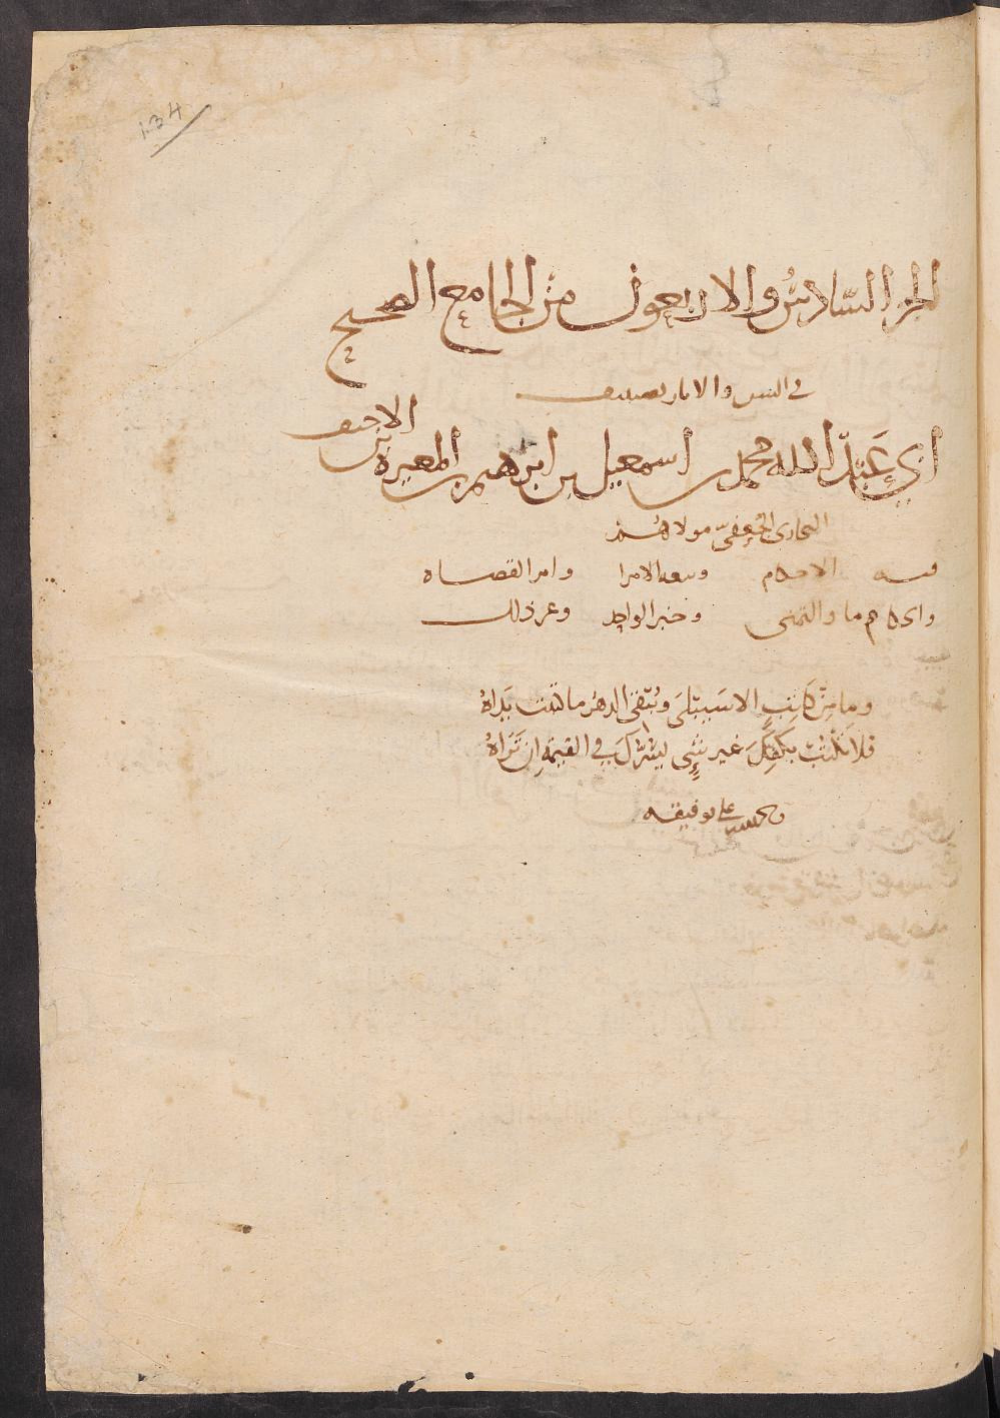 134
الجزء السادس والاربعون من الجامع الصحيح
في السنن والاثار تصنيف
ابي عبد الله محمد بن اسمعيل بن ابرهيم بن المغيرة بن الاحنف
البخاري الجعفي مولاهم
فيه الاحكام وبيعه الامرا وامر القضاه
واي والتمني وخبر الواحد وغير ذلك
وما من كاتب الا سيبلى ويبقي الدهر ما كتبت يداه
فلا تكتب بكفك غير شيء يسرك في القيمة ان تراه
على توفيقه